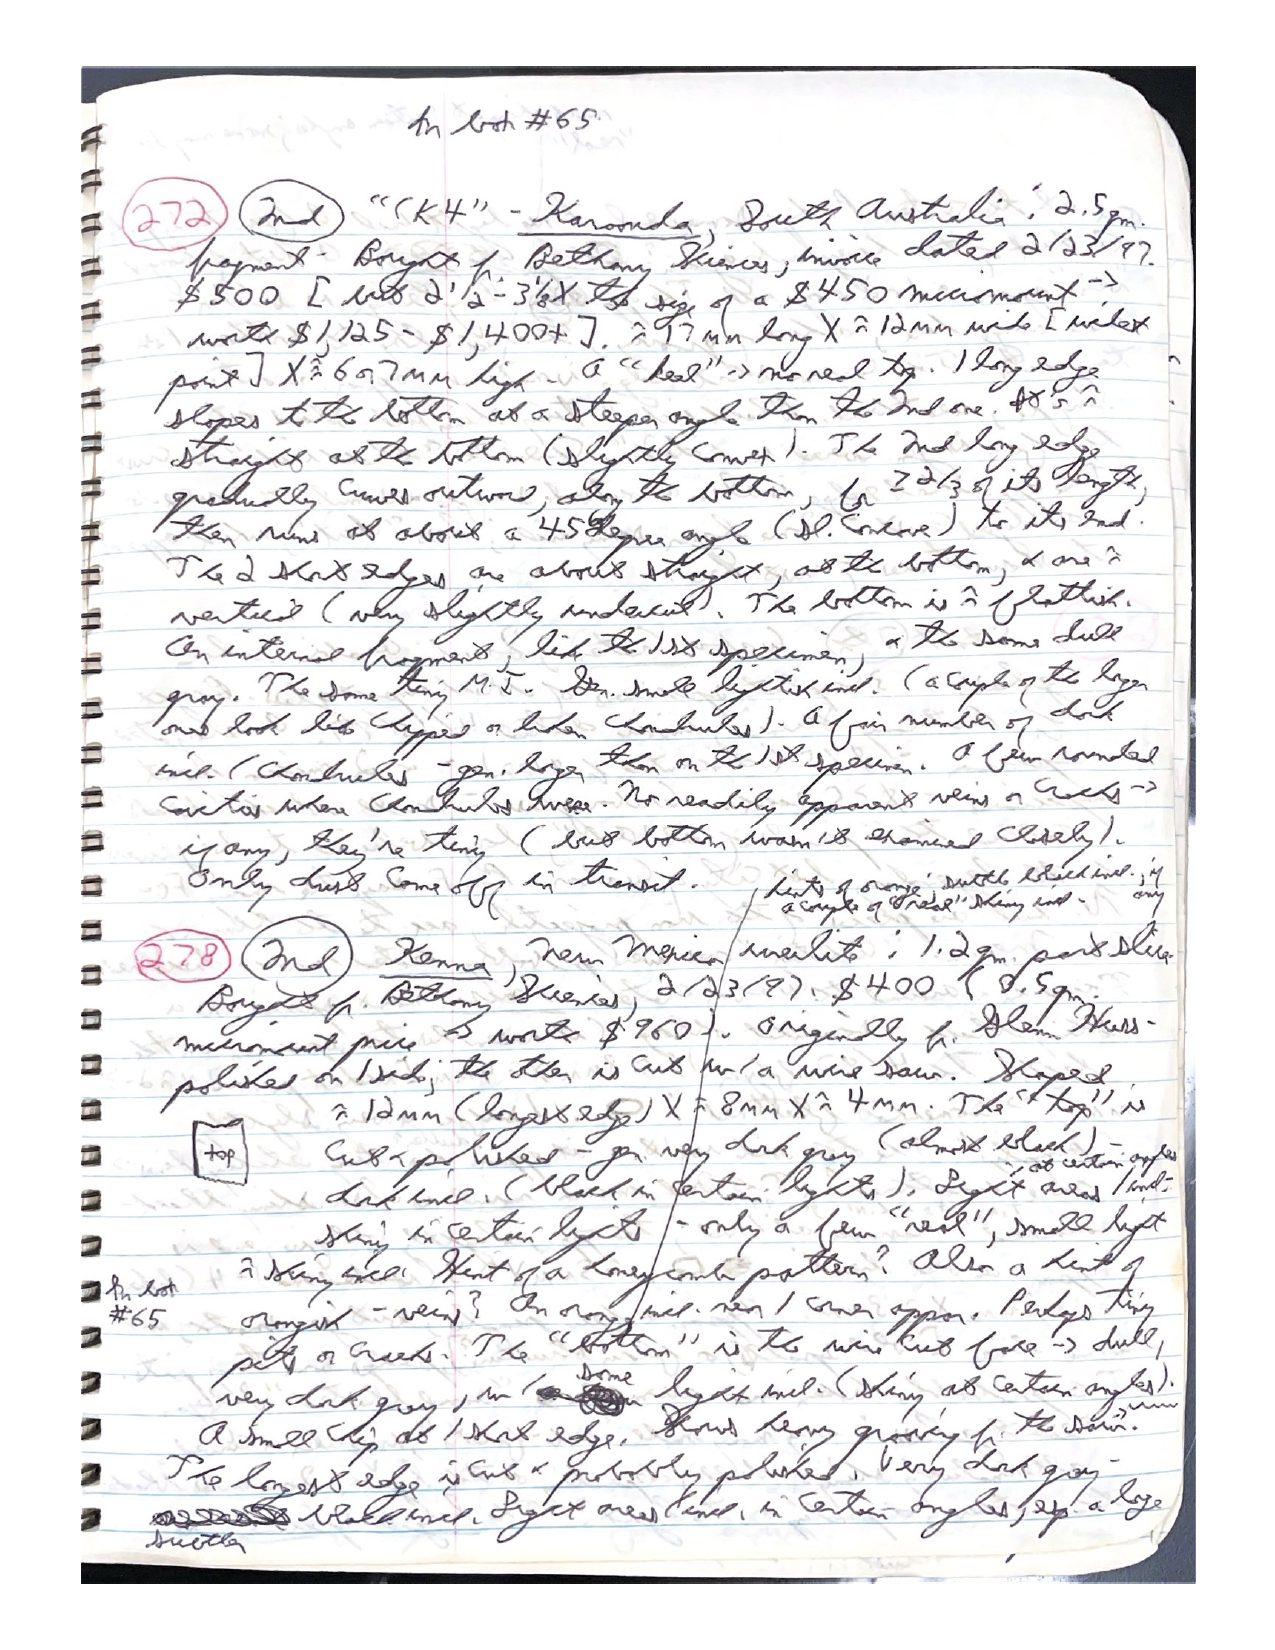 In box #65
272 2nd "CK4" - Karoonda, South Australia: 2.5gm.
fragment - Bought f. Bethany Sciences, invoice dated 2/23/97.
$500 [but 2 1/2 - 3 1/8 X the size of a $450 micromount ->
worth $1,125 - $1,400+]. ≈ 17 mm long X ≈ 12mm wide [widest
point] X ≈ 6 or 7 mm high. A "heal" -> no real top. 1 long edge
slopes to the bottom at a steeper angle than the 2nd one. It's ≈
straight at the bottom (slightly convex). The 2nd long edge
gradually curves outward, along the bottom, for 2/3 of its length,
then runs at about a 45 degree angle (sl. concave) to its end.
The 2 short edges are about straight, at the bottom, & are ≈
vertical (very slightly undercut). The bottom is ≈ flattish.
An internal fragment, like the 1st specimen, & the same dull
gray. The same tiny M.I. Gen. small lightish incl. (a couple of the larger
ones look like chipped or broken chondrules). A fair number of dark
incl. (chondrules - gen. larger than on the 1st specimen. A few rounded
cavities where chondrules were. No readily apparent veins or cracks ->
if any, they're tiny (but bottom wasn't examined closely).
Only dust came off in transit.
hints of orange; subtle black incl.; if any
a couple of "real" shiny incl.
278 2nd Kenna, New Mexico ureilite: 1.2gm. part slice
Bought f. Bethany Sciences, 2/23/97. $400 (0.5gm.
micromount price -> worth $960). Originally f. Glenn Huss -
polished on 1 side; the other is cut w/a wire saw. Shaped
≈ 12mm (longest edge) X ≈ 8mm X ≈ 4mm. The "top" is
top
cut & polished - gen. very dark gray (almost black) -
dark incl. (black in certain lights). Light areas/incl. - at certain angles
shiny in certain lights - only a few "real", small light
≈ shiny incl. Hint of a honeycomb pattern? Also a hint of
In box
#65
orangish - veins? An orange incl. near 1 corner appar. Perhaps tiny
pits or cracks. The "bottom" is the wire cut face -> dull,
very dark gray, w/ some light incl. (shiny at certain angles).
A small chip at 1 short edge. Shows heavy grooving f. the saw.
The longest edge is cut & probably polished. Very dark gray -
subtler black incl. Light areas/incl. in certain angles, esp. a large